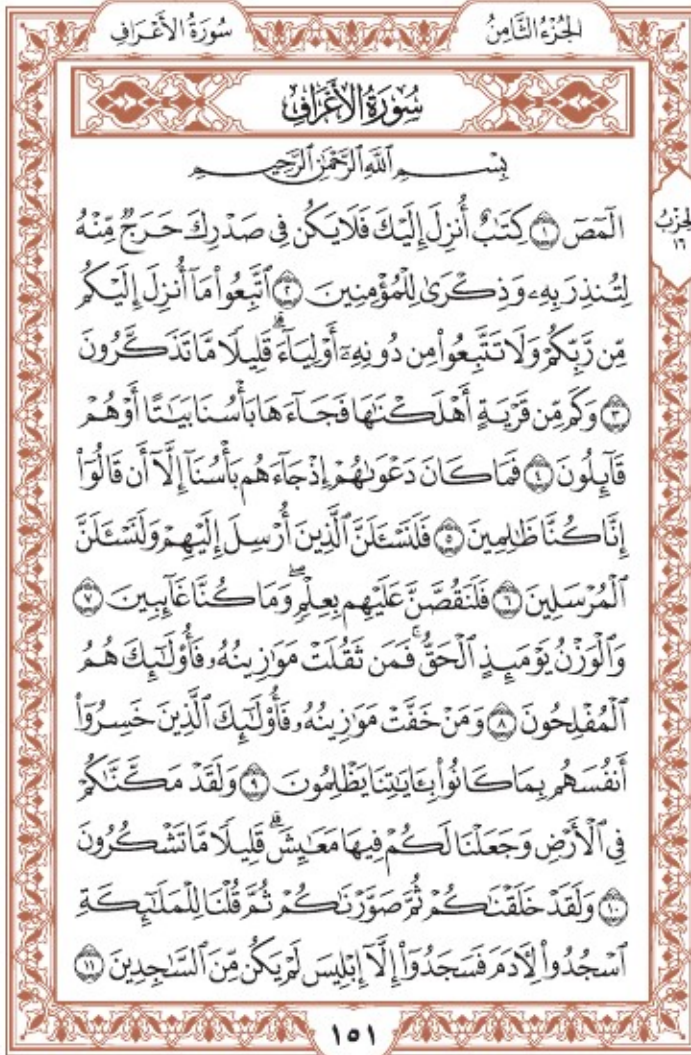 سُورَةُ الأَعْرَافِ
الجُزْءُ الثَّامِنُ
سُورَةُ الأَعْرَافِ
بِسْمِ ٱللَّهِ ٱلرَّحْمَٰنِ ٱلرَّحِيمِ
الحِزْبُ ١٦
الٓمٓصٓ ١ كِتَٰبٌ أُنزِلَ إِلَيْكَ فَلَا يَكُن فِى صَدْرِكَ حَرَجٌ مِّنْهُ
لِتُنذِرَ بِهِۦ وَذِكْرَىٰ لِلْمُؤْمِنِينَ ٢ ٱتَّبِعُوا۟ مَآ أُنزِلَ إِلَيْكُم
مِّن رَّبِّكُمْ وَلَا تَتَّبِعُوا۟ مِن دُونِهِۦٓ أَوْلِيَآءَ ۗ قَلِيلًا مَّا تَذَكَّرُونَ
٣ وَكَم مِّن قَرْيَةٍ أَهْلَكْنَٰهَا فَجَآءَهَا بَأْسُنَا بَيَٰتًا أَوْ هُمْ
قَآئِلُونَ ٤ فَمَا كَانَ دَعْوَىٰهُمْ إِذْ جَآءَهُم بَأْسُنَآ إِلَّآ أَن قَالُوٓا۟
إِنَّا كُنَّا ظَٰلِمِينَ ٥ فَلَنَسْـَٔلَنَّ ٱلَّذِينَ أُرْسِلَ إِلَيْهِمْ وَلَنَسْـَٔلَنَّ
ٱلْمُرْسَلِينَ ٦ فَلَنَقُصَّنَّ عَلَيْهِم بِعِلْمٍ ۖ وَمَا كُنَّا غَآئِبِينَ ٧
وَٱلْوَزْنُ يَوْمَئِذٍ ٱلْحَقُّ ۚ فَمَن ثَقُلَتْ مَوَٰزِينُهُۥ فَأُو۟لَٰٓئِكَ هُمُ
ٱلْمُفْلِحُونَ ٨ وَمَنْ خَفَّتْ مَوَٰزِينُهُۥ فَأُو۟لَٰٓئِكَ ٱلَّذِينَ خَسِرُوٓا۟
أَنفُسَهُم بِمَا كَانُوا۟ بِـَٔايَٰتِنَا يَظْلِمُونَ ٩ وَلَقَدْ مَكَّنَّٰكُمْ
فِى ٱلْأَرْضِ وَجَعَلْنَا لَكُمْ فِيهَا مَعَٰيِشَ ۗ قَلِيلًا مَّا تَشْكُرُونَ
١٠ وَلَقَدْ خَلَقْنَٰكُمْ ثُمَّ صَوَّرْنَٰكُمْ ثُمَّ قُلْنَا لِلْمَلَٰٓئِكَةِ
ٱسْجُدُوا۟ لِـَٔادَمَ فَسَجَدُوٓا۟ إِلَّآ إِبْلِيسَ لَمْ يَكُن مِّنَ ٱلسَّٰجِدِينَ ١١
١٥١